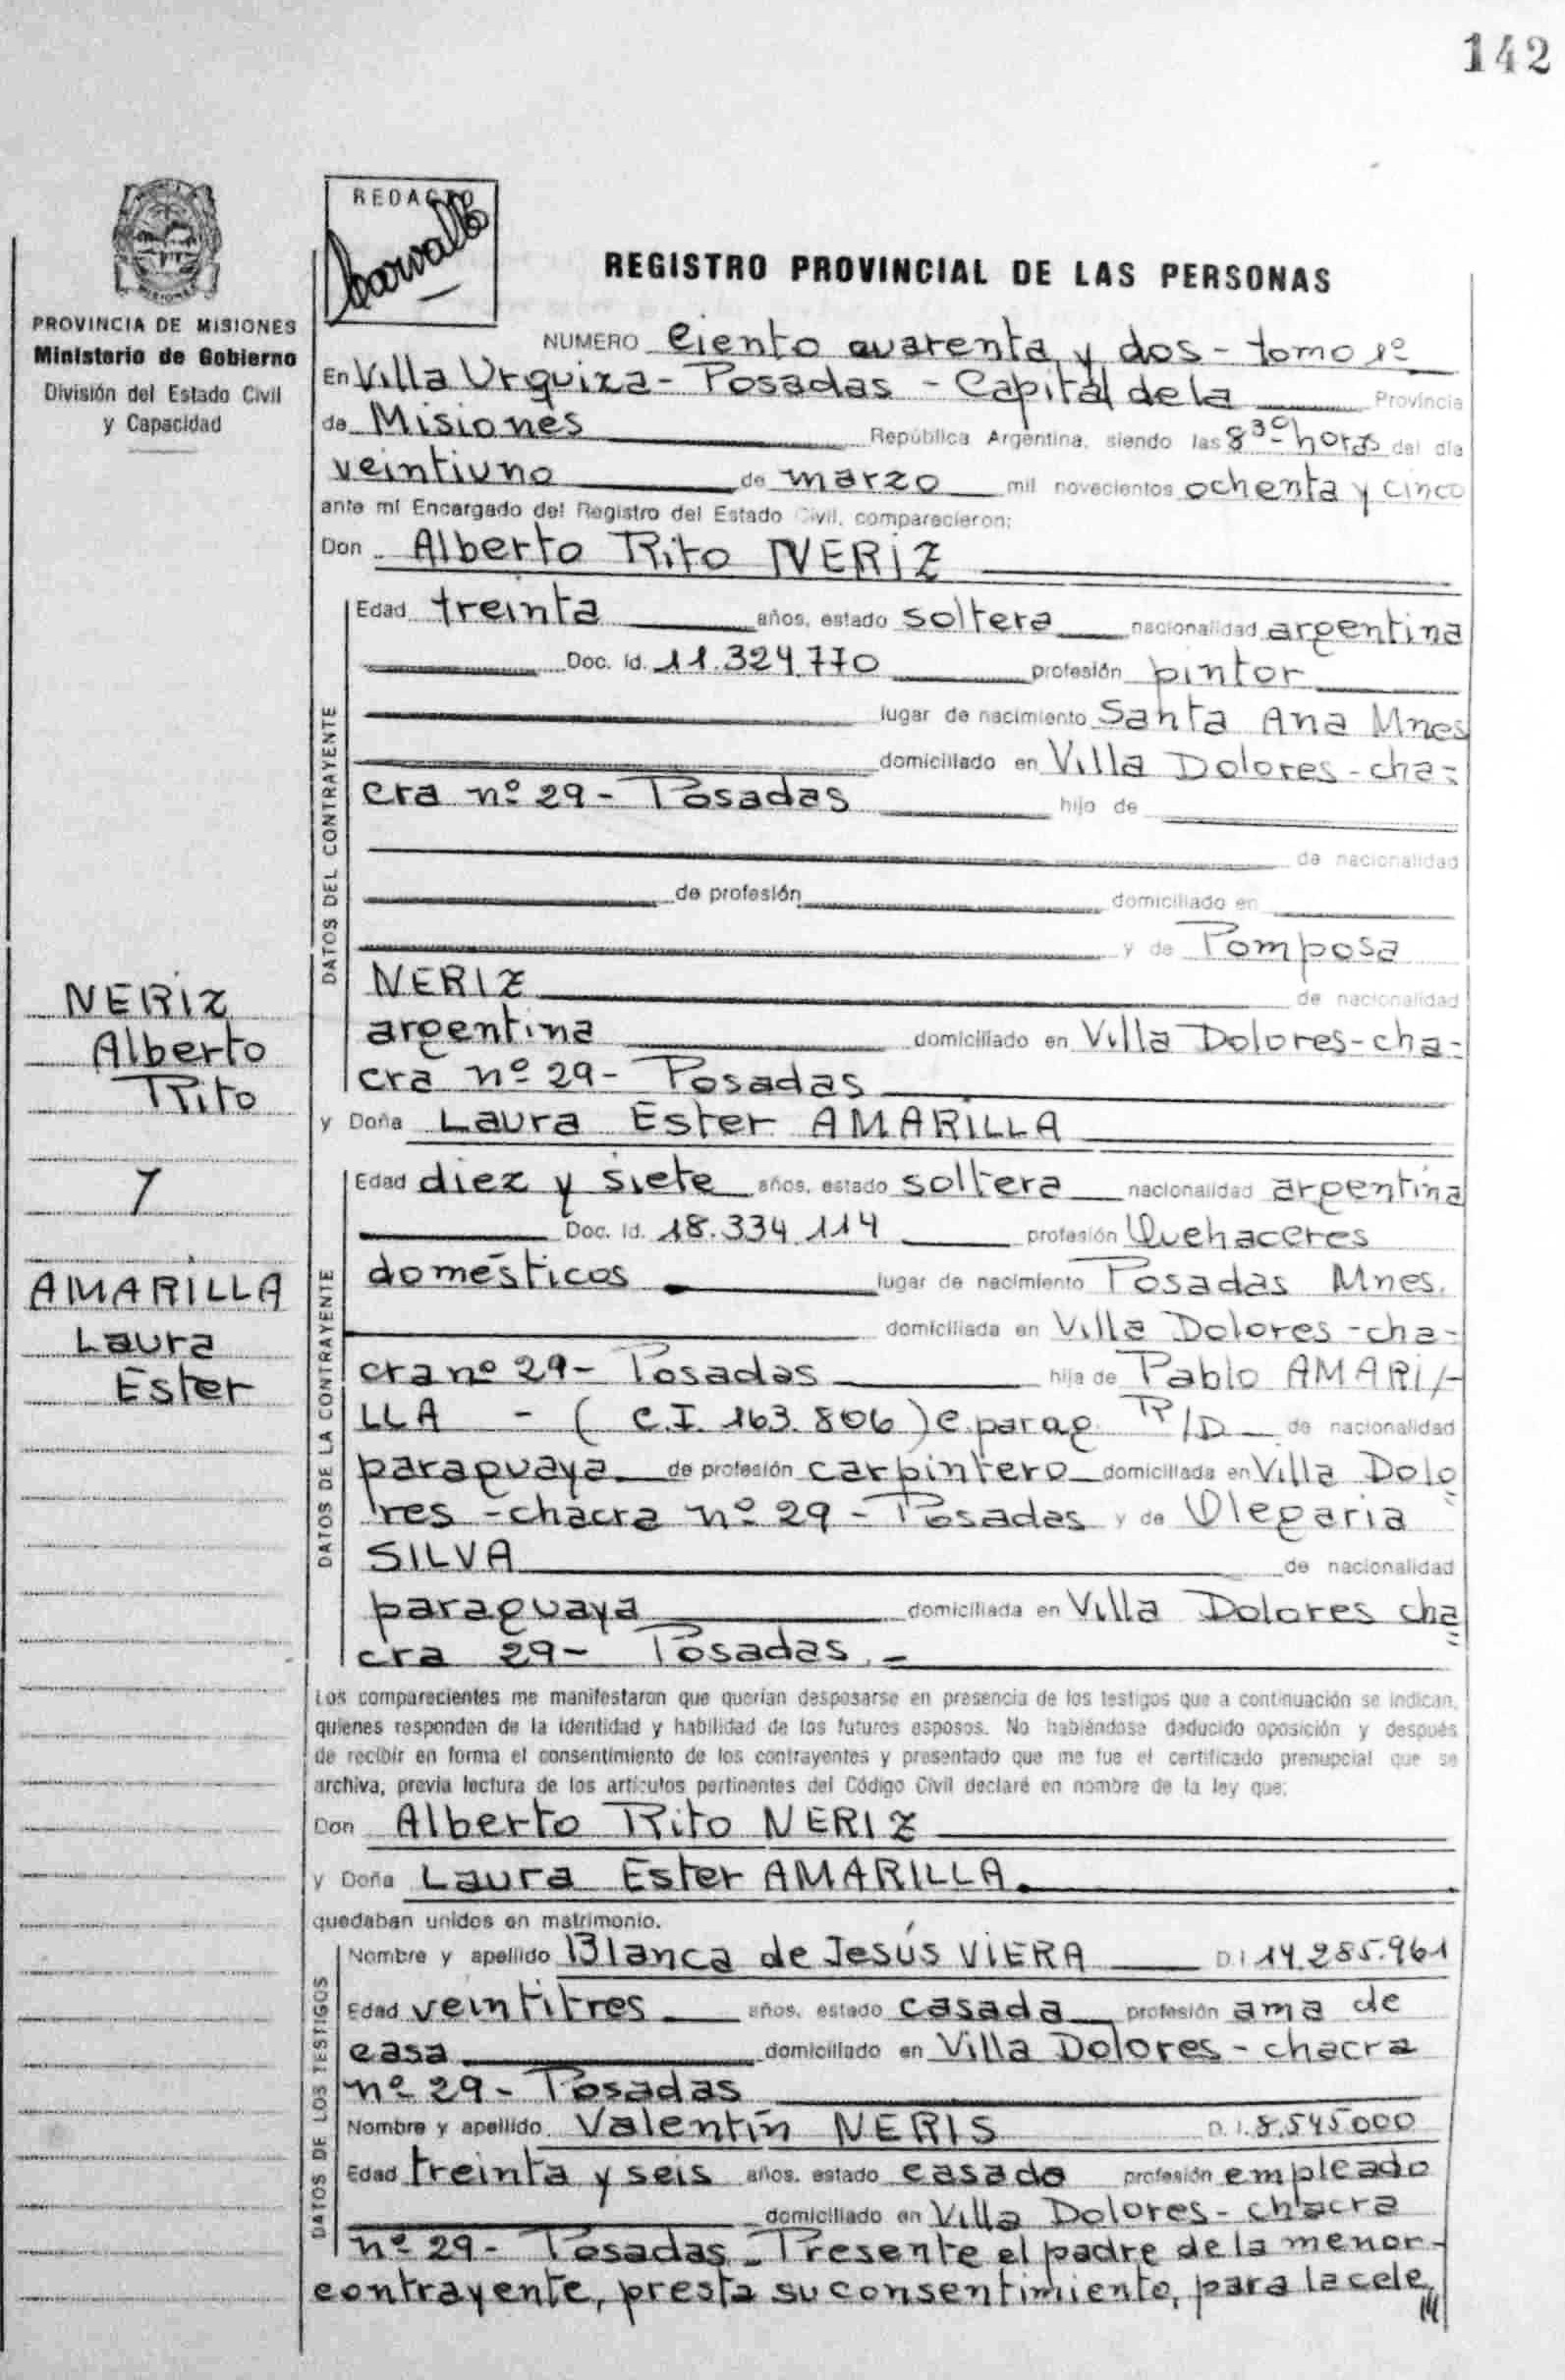 142
REDACTO
REGISTRO PROVINCIAL DE LAS PERSONAS
PROVINCIA DE MISIONES
Ministerio de Gobierno
División del Estado Civil
y Capacidad
NUMERO Ciento cuarenta y dos - tomo 1º
En Villa Urquiza - Posadas - Capital de la Provincia
de Misiones República Argentina, siendo las 8 30 horas del día
veintiuno de marzo mil novecientos ochenta y cinco
ante mí Encargado del Registro del Estado Civil, comparecieron:
Don Alberto Rito NERIZ
DATOS DEL CONTRAYENTE
Edad treinta años, estado soltero nacionalidad argentina
Doc. Id. 11.324.770 profesión pintor
lugar de nacimiento Santa Ana Mnes
domiciliado en Villa Dolores - cha=
cra nº 29 - Posadas hijo de
de nacionalidad
de profesión domiciliado en
y de Pomposa
NERIZ de nacionalidad
argentina domiciliado en Villa Dolores - cha=
cra nº 29 - Posadas
y Doña Laura Ester AMARILLA
DATOS DE LA CONTRAYENTE
Edad diez y siete años, estado soltera nacionalidad argentina
Doc. Id. 18.334.114 profesión Quehaceres
domésticos lugar de nacimiento Posadas Mnes.
domiciliada en Villa Dolores - cha-
cra nº 29 - Posadas hija de Pablo AMARI/-
LLA - (C.I. 163.806) e. parag. R/D de nacionalidad
paraguaya de profesión carpintero domiciliada en Villa Dolo
res - chacra nº 29 - Posadas y de Olegaria
SILVA de nacionalidad
paraguaya domiciliada en Villa Dolores cha=
cra 29 - Posadas. -
Los comparecientes me manifestaron que querían desposarse en presencia de los testigos que a continuación se indican,
quienes responden de la identidad y habilidad de los futuros esposos. No habiéndose deducido oposición y después
de recibir en forma el consentimiento de los contrayentes y presentado que me fue el certificado prenupcial que se
archiva, previa lectura de los artículos pertinentes del Código Civil declaré en nombre de la ley que:
Don Alberto Rito NERIZ
y Doña Laura Ester AMARILLA.
quedaban unidos en matrimonio.
DATOS DE LOS TESTIGOS
Nombre y apellido Blanca de Jesús VIERA D.I 14.285.961
Edad veintitres años, estado casada profesión ama de
casa domiciliado en Villa Dolores - chacra
nº 29 - Posadas
Nombre y apellido Valentín NERIS D.I. 8.545.000
Edad treinta y seis años, estado casado profesión empleado
domiciliado en Villa Dolores - chacra
nº 29 - Posadas - Presente el padre de la menor -
contrayente, presta su consentimiento, para la cele
NERIZ
Alberto
Rito
y
AMARILLA
Laura
Ester